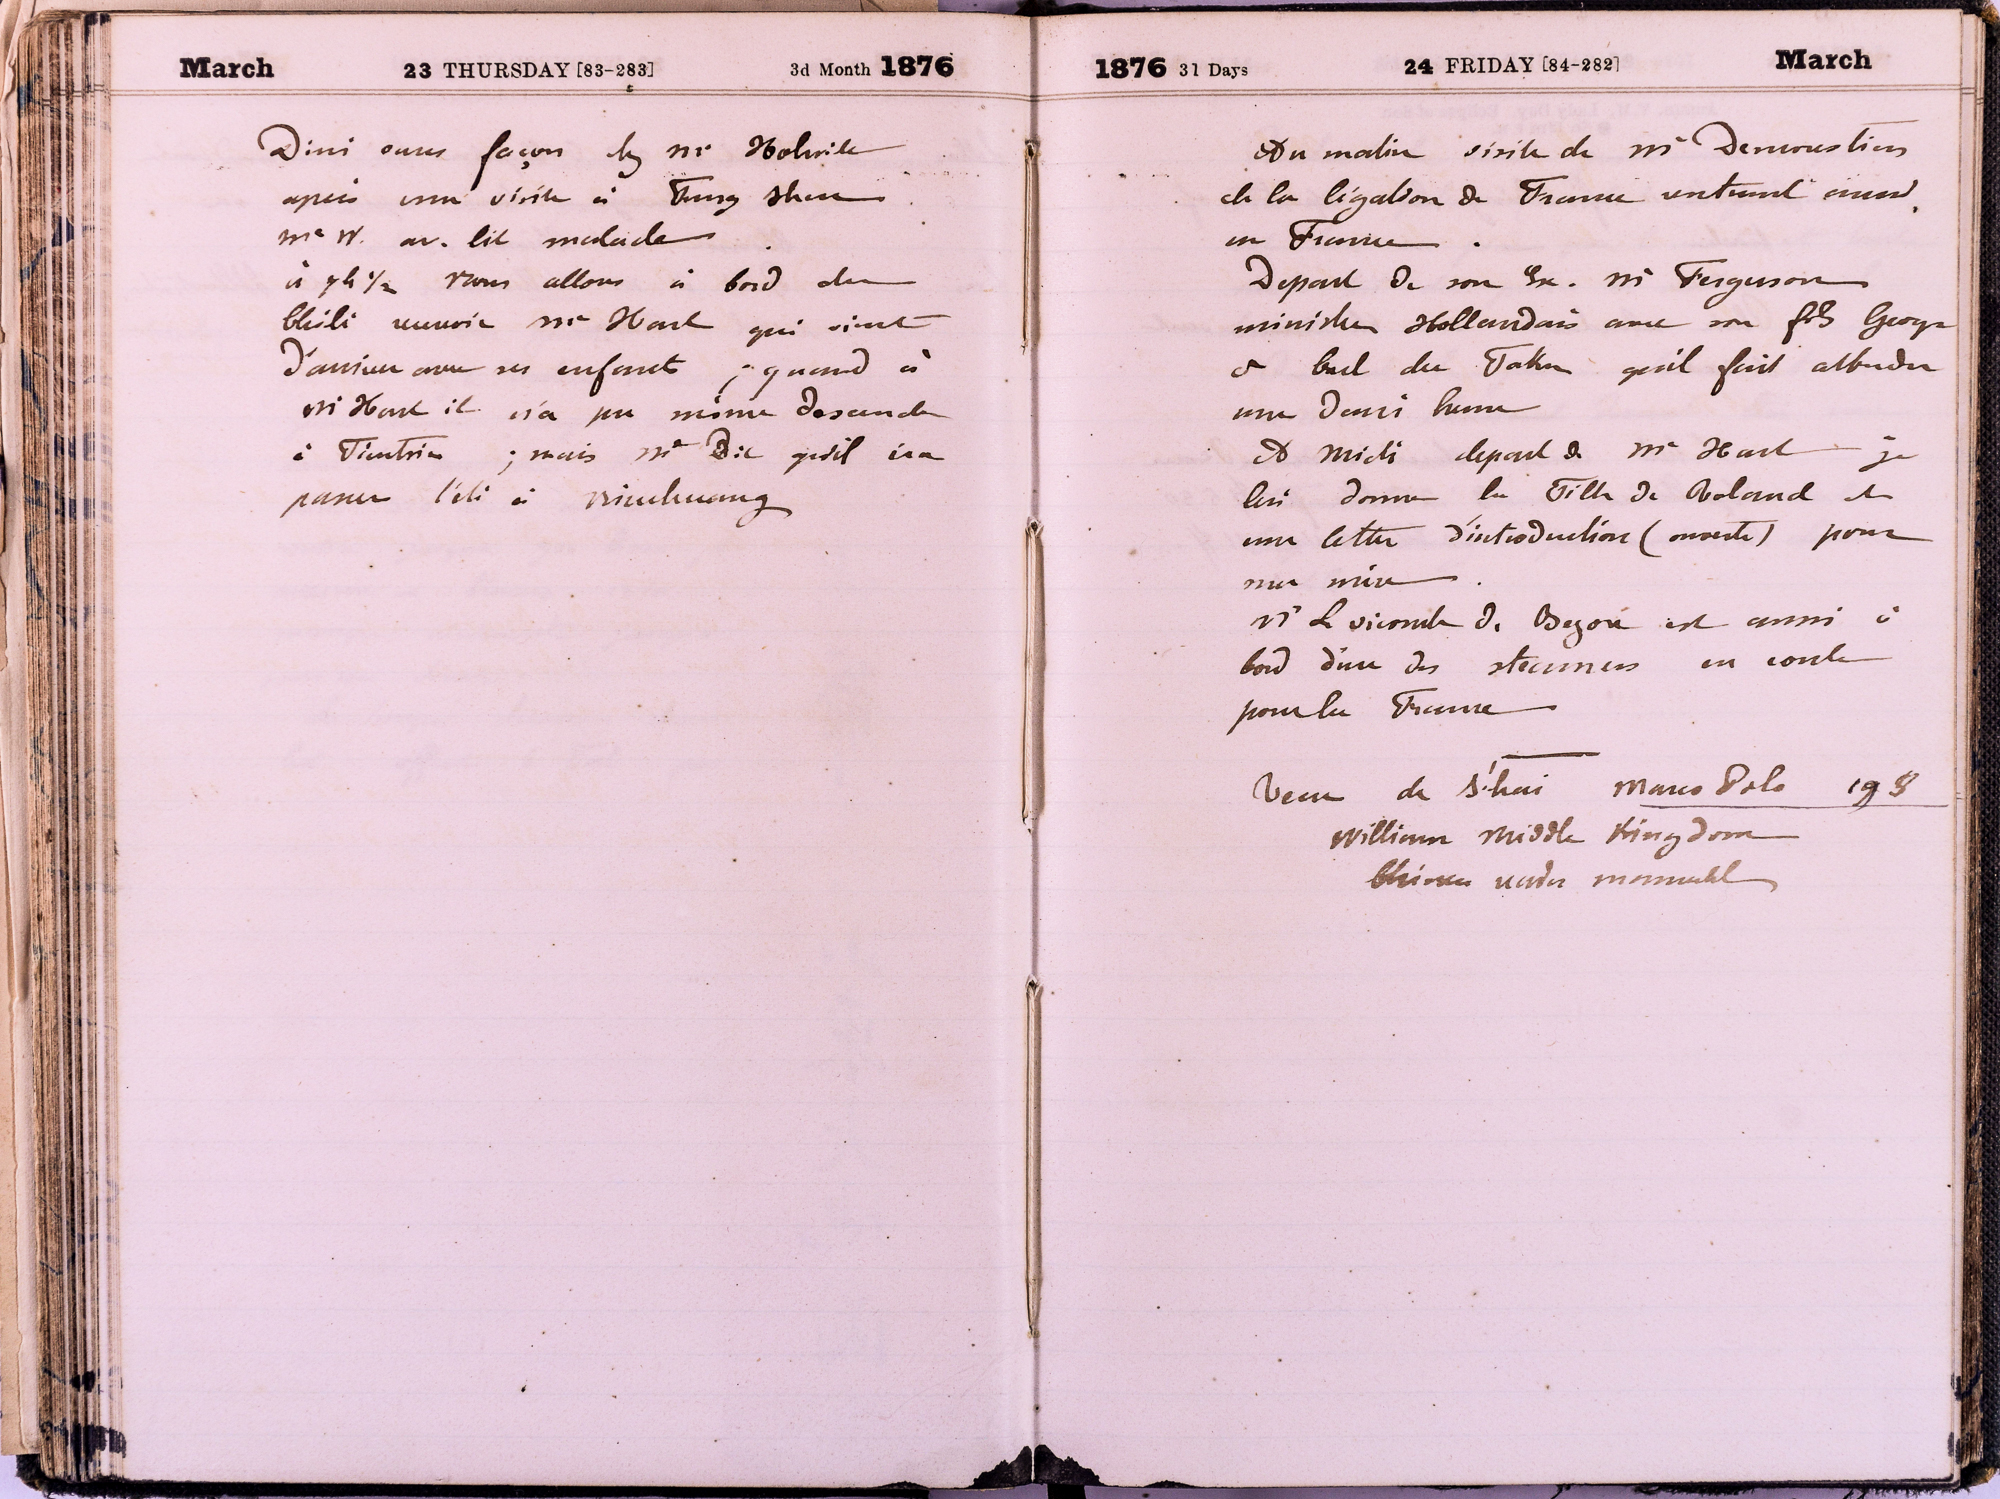 March 23 THURSDAY [83-283] 3d Month 1876
Dini sans façon chez Mr
après une visite à Fung Shun
Me W. au lit malade
à 9h ½ nous allons à bord du
Chili recevoir Me Hart qui vient
d'arriver avec ses enfants ; quand à
Mr Hart il n'a pu même descendre
à Tientsin ; mais Mr Dit qu'il ira
passer l'été à Niuchwang
1876 31 Days 24 FRIDAY [84-282] March
Au matin visite de Mr Demoustiers
de la légation de France rentrant aussi
en France .
Depart de son Ex. Mr Ferguson
ministre Hollandais avec son fils George
à bord du Taku qu'il fait attendre
une Demi heure
A Midi depart de Me Hart je
lui donne la Fille de Roland et
une lettre d'introduction (ouverte) pour
ma mère .
Mr Le vicomte de est aussi à
bord d'un des steamers en route
pour la France
Venu de S'hai Marco Polo 198
William Middle Kingdom
Chinese reader mannuel